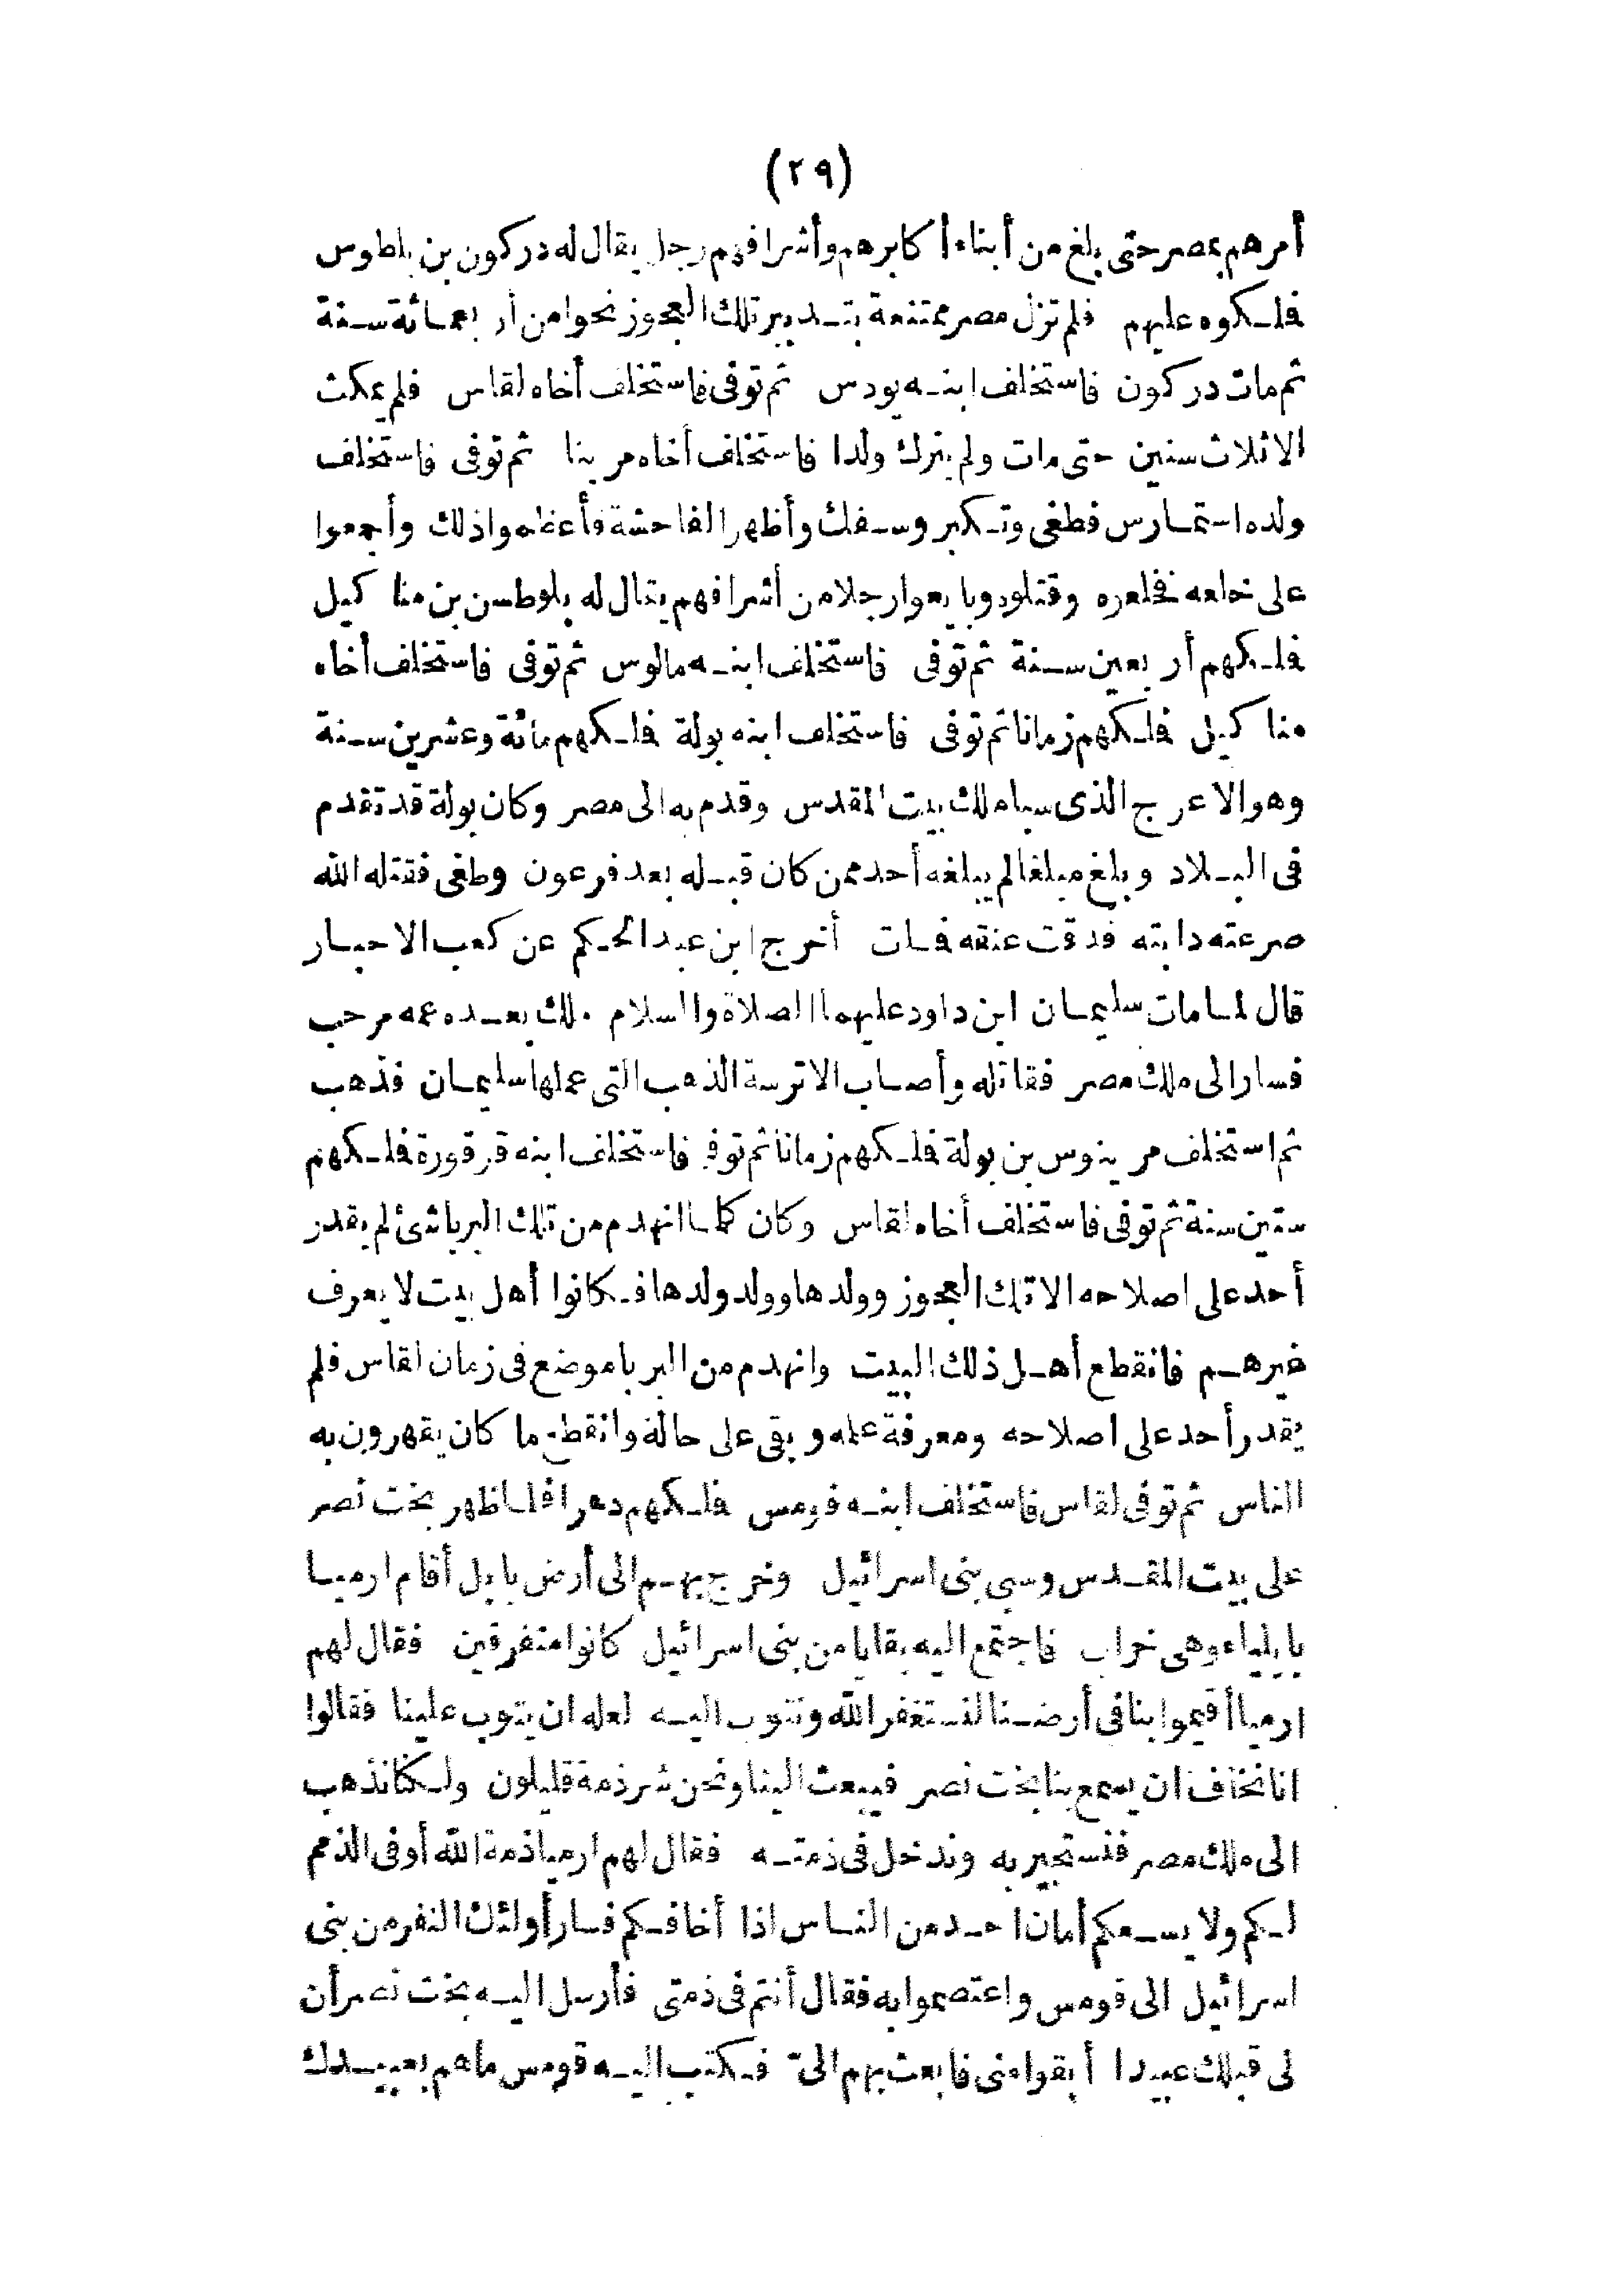 (٢٩)
أمرهم بمصر حتى بلغ من أبناء أكابرهم وأشرافهم رجل يقال له دركون بن بلطوس
فملكوه عليهم فلم تزل مصر ممتنعة بتدبير تلك العجوز نحوا من أربعمائة سنة
ثم مات دركون فاستخلف ابنه يودس ثم توفى فاستخلف أخاه لقاس فلم يمكث
الاثلاث سنين حتى مات ولم يترك ولدا فاستخلف أخاه مرينا ثم توفى فاستخلف
ولده استمارس فطغى وتكبر وسفك وأظهر الفاحشة فأعظموا ذلك وأجمعوا
على خلعه فخلعوه وقتلوه وبايعوا رجلا من أشرافهم يقال له بلوطس بن مناكيل
فملكهم أربعين سنة ثم توفى فاستخلف ابنه مالوس ثم توفى فاستخلف أخاه
مناكيل فملكهم زمانا ثم توفى فاستخلف ابنه بولة فملكهم مائة وعشرين سنة
وهو الاعرج الذى سبا ملك بيت المقدس وقدم به الى مصر وكان بولة قد تقدم
فى البلاد وبلغ مبلغا لم يبلغه أحد ممن كان قبله بعد فرعون وطغى فقتله الله
صرعته دابته فدقت عنقه فمات أخرج ابن عبد الحكم عن كعب الاحبار
قال لما مات سليمان ابن داود عليهما الصلاة والسلام ملك بعده عمه مرحب
فسار الى ملك مصر فقاتله وأصاب الاترسة الذهب التى عملها سليمان فذهب
ثم استخلف مرينوس بن بولة فملكهم زمانا ثم توفى فاستخلف ابنه قرقورة فملكهم
ستين سنة ثم توفى فاستخلف أخاه لقاس وكان كلما انهدم من تلك البربا شئ لم يقدر
أحد على اصلاحه الا تلك العجوز وولدها وولد ولدها فكانوا أهل بيت لا يعرف
غيرهم فانقطع أهل ذلك البيت وانهدم من البربا موضع فى زمان لقاس فلم
يقدر أحد على اصلاحه ومعرفة علمه وبقى على حاله وانقطع ما كان يقهرون به
الناس ثم توفى لقاس فاستخلف ابنه قومس فملكهم دهرا فلما ظهر بخت نصر
على بيت المقدس وسبى بنى اسرائيل وخرج بهم الى أرض بابل أقام ارميا
بايلياء وهى خراب فاجتمع اليه بقايا من بنى اسرائيل كانوا متفرقين فقال لهم
ارميا أقيموا بنا فى أرضنا لنستغفر الله ونتوب اليه لعله ان يتوب علينا فقالوا
انا نخاف ان يسمع بنا بخت نصر فيبعث الينا ونحن شرذمة قليلون ولكنا نذهب
الى ملك مصر فنستجير به وندخل فى ذمته فقال لهم ارميا ذمة الله أوفى الذمم
لكم ولا يسعكم أمان احد من الناس اذا أخافكم فسار أولئك النفر من بنى
اسرائيل الى قومس واعتصموا به فقال أنتم فى ذمتى فأرسل اليه بخت نصر أن
لى قبلك عبيدا أبقوا منى فابعث بهم الىّ فكتب اليه قومس ماهم بعبيدك